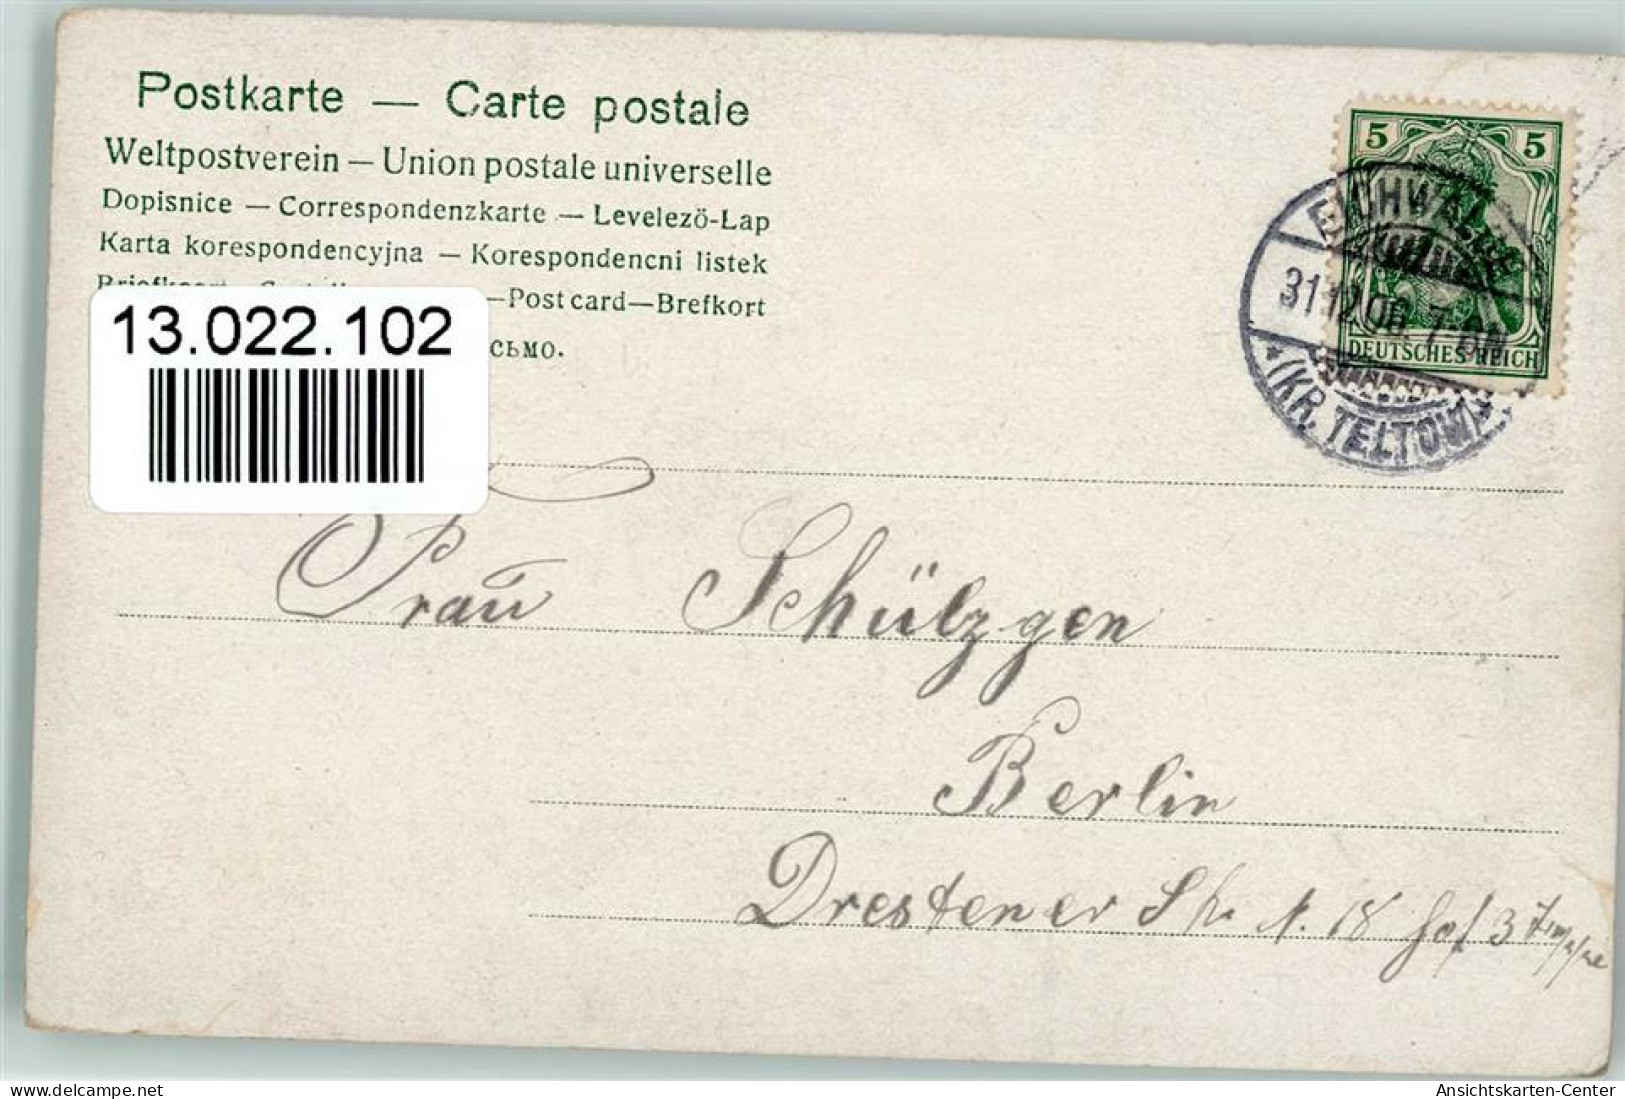 Postkarte — Carte postale
Weltpostverein — Union postale universelle
Dopisnice — Correspondenzkarte — Levelező-Lap
Karta korespondencyjna — Korespondencni listek
—Post card—Brefkort
сьмо.
13.022.102
5 5
DEUTSCHES REICH
EICHWALDE
31.12.06. 7-8N
(KR. TELTOW)
Frau Schülzgen
Berlin
Drestener Str. N. 18 Hof 3
delcampe.net
Ansichtskarten-Center